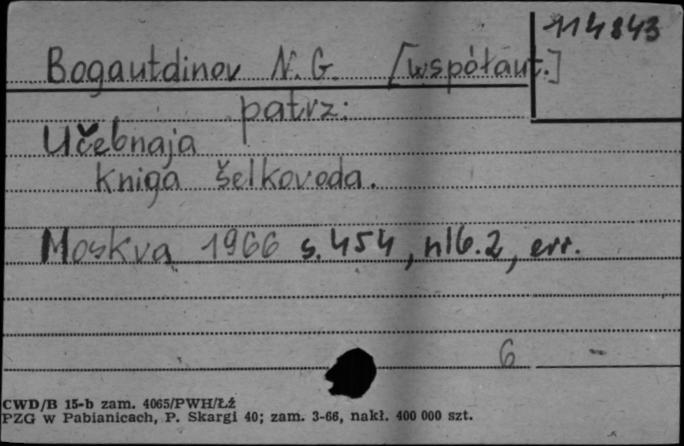 114843
Bogautdinov N.G. [współaut.]
patrz:
Učebnaja
kniga šelkovoda.
Moskva 1966 s. 454, nlb. 2, err.
6 -
CWD/B 15-b zam. 4065/PWH/Łź
PZG w Pabianicach, P. Skargi 40; zam. 3-66, nakł. 400 000 szt.